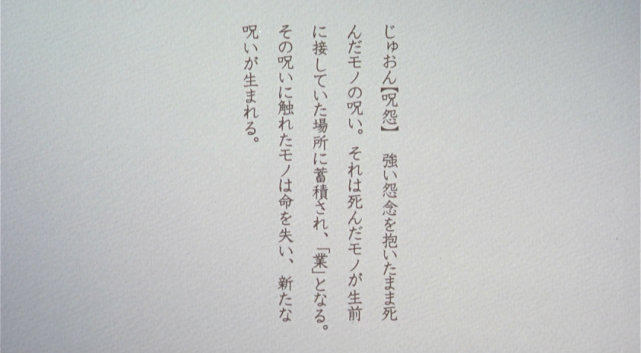 じゅおん【呪怨】　強い怨念を抱いたまま死
んだモノの呪い。それは死んだモノが生前
に接していた場所に蓄積され、「業」となる。
その呪いに触れたモノは命を失い、新たな
呪いが生まれる。